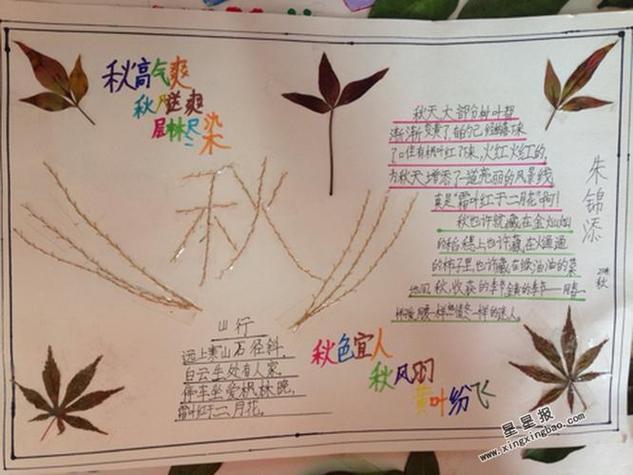 秋高气爽
秋风送爽
层林尽染
秋
秋天,大部分树叶都
渐渐变黄了,有的已经
了。但有枫叶红了起来,火红火红的,
为秋天增添了一道亮丽的风景线,
真是“霜叶红于二月花”啊!
秋也许就藏在金灿灿
的稻穗上,也许藏在火通通
的柿子里,也许藏在绿油油的菜
地里。秋,收获的季节,金黄的季节——同春一
一样 一样的迷人。
朱锦添
秋
山行
远上寒山石径斜,
白云生处有人家。
停车坐爱枫林晚,
霜叶红于二月花。
秋色宜人
秋风羽
黄叶纷飞
星星报
www.xingxingbao.com